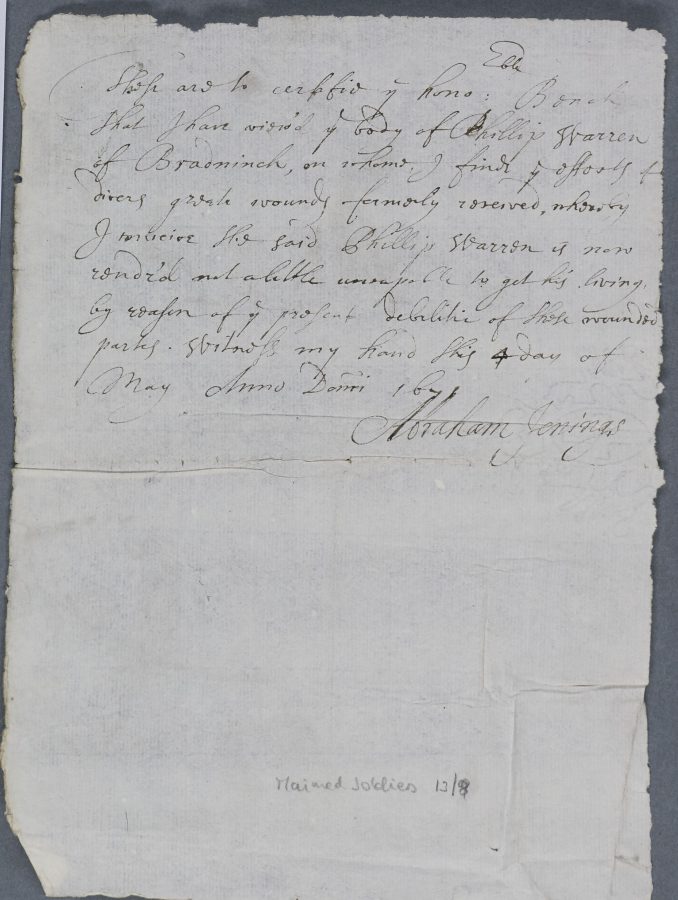 These are to certifie ye hono: ble Bench
That I have view'd ye body of Phillip Warren
of Bradninch, on whome, I finde ye effects of
divers greate wounds formerly received, whereby
I conceive the said Phillip Warren is now
rendr'd not a little uncapable to get his living,
by reason of ye present debilitie of these wounded
partes. Witness my hand this 4 day of
May Anno Domi 1671
Abraham Jenings
Maimed Soldiers 13/8